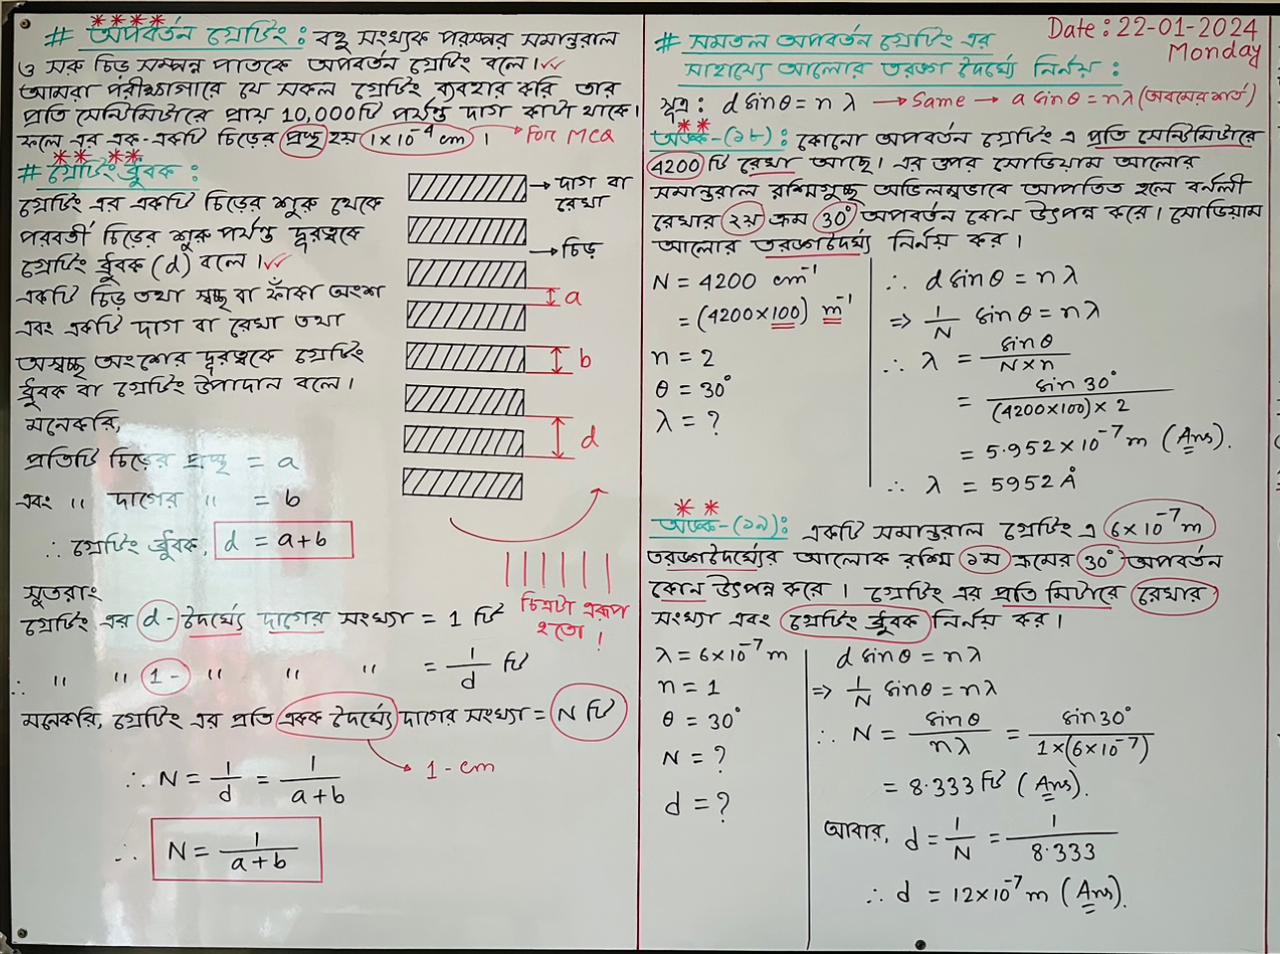 # অপবর্তন গ্রেটিং : বহু সংখ্যক পরস্পর সমান্তরাল
ও সরু চিড় সম্পন্ন পাতকে অপবর্তন গ্রেটিং বলে।
আমরা পরীক্ষাগারে যে সকল গ্রেটিং ব্যবহার করি তার
প্রতি সেন্টিমিটারে প্রায় 10,000 টি পর্যন্ত দাগ কাটা থাকে।
ফলে এর এক-একটি চিড়ের প্রস্থ হয় 1×10⁻⁴ cm । For MCQ
# গ্রেটিং ধ্রুবক :
গ্রেটিং এর একটি চিড়ের শুরু থেকে
পরবর্তী চিড়ের শুরু পর্যন্ত দূরত্বকে
গ্রেটিং ধ্রুবক (d) বলে।
একটি চিড় তথা স্বচ্ছ বা ফাঁকা অংশ
এবং একটি দাগ বা রেখা তথা
অস্বচ্ছ অংশের দূরত্বকে গ্রেটিং
ধ্রুবক বা গ্রেটিং উপাদান বলে।
দাগ বা
রেখা
চিড়
a
b
d
চিত্রটা এরূপ
হতো।
মনেকরি,
প্রতিটি চিড়ের প্রস্থ = a
এবং " দাগের " = b
∴ গ্রেটিং ধ্রুবক, d = a+b
সুতরাং
গ্রেটিং এর d - দৈর্ঘ্যে দাগের সংখ্যা = 1 টি
∴ " " 1 - " " " = 1/d টি
মনেকরি, গ্রেটিং এর প্রতি একক দৈর্ঘ্যে দাগের সংখ্যা = N টি
1 - cm
∴ N = 1/d = 1/(a+b)
∴ N = 1/(a+b)
Date : 22-01-2024
Monday
# সমতল অপবর্তন গ্রেটিং এর
সাহায্যে আলোর তরঙ্গ দৈর্ঘ্য নির্নয় :
সূত্র : d sinθ = n λ → Same → a sinθ = nλ (অবমের শর্ত)
অঙ্ক-(১৮) : কোনো অপবর্তন গ্রেটিং এ প্রতি সেন্টিমিটারে
4200 টি রেখা আছে। এর উপর সোডিয়াম আলোর
সমান্তরাল রশ্মিগুচ্ছ অভিলম্বভাবে আপতিত হলে বর্নালী
রেখার ২য় ক্রম 30° অপবর্তন কোন উৎপন্ন করে। সোডিয়াম
আলোর তরঙ্গদৈর্ঘ্য নির্নয় কর।
N = 4200 cm⁻¹
= (4200×100) m⁻¹
n = 2
θ = 30°
λ = ?
∴ d sinθ = n λ
⇒ 1/N sinθ = nλ
∴ λ = sinθ/(N×n)
= sin 30°/((4200×100)×2)
= 5.952×10⁻⁷ m (Ans).
∴ λ = 5952 Å
অঙ্ক-(১৯) : একটি সমান্তরাল গ্রেটিং এ 6×10⁻⁷ m
তরঙ্গদৈর্ঘ্যের আলোক রশ্মি ১ম ক্রমের 30° অপবর্তন
কোন উৎপন্ন করে । গ্রেটিং এর প্রতি মিটারে রেখার
সংখ্যা এবং গ্রেটিং ধ্রুবক নির্নয় কর।
λ = 6×10⁻⁷ m
n = 1
θ = 30°
N = ?
d = ?
d sinθ = nλ
⇒ 1/N sinθ = nλ
∴ N = sinθ/nλ = sin30°/(1×(6×10⁻⁷))
= 8.333 টি (Ans).
আবার, d = 1/N = 1/8.333
∴ d = 12×10⁻⁷ m (Ans).